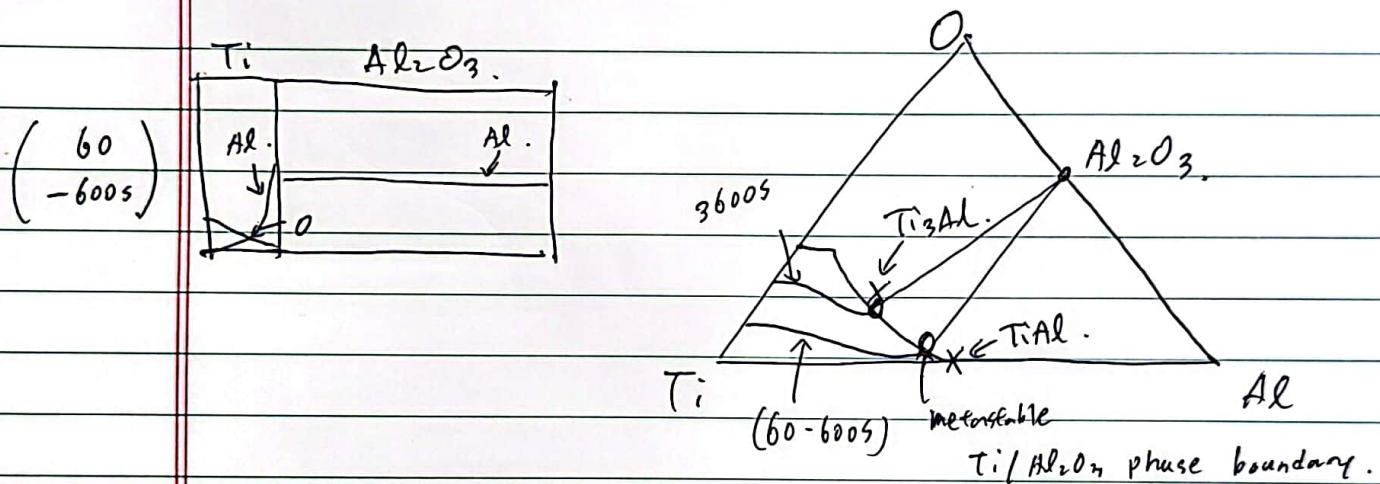 Ti Al₂O₃.
( 60 -600s )
Al.
Al.
O
O
Al₂O₃.
3600s
Ti₃Al.
TiAl.
Ti
Al
(60-600s)
metastable
Ti/Al₂O₃ phase boundary.